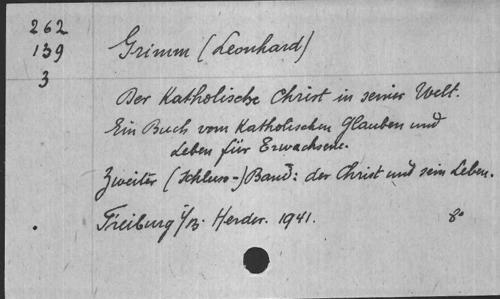 262
139
3
Grimm (Leonhard)
Der Katholische Christ in seiner Welt.
Ein Buch vom Katholischen Glauben und
Leben für Erwachsene.
Zweiter (Schluss-) Band: der Christ und sein Leben.
Freiburg i/B. Herder. 1941. 8°